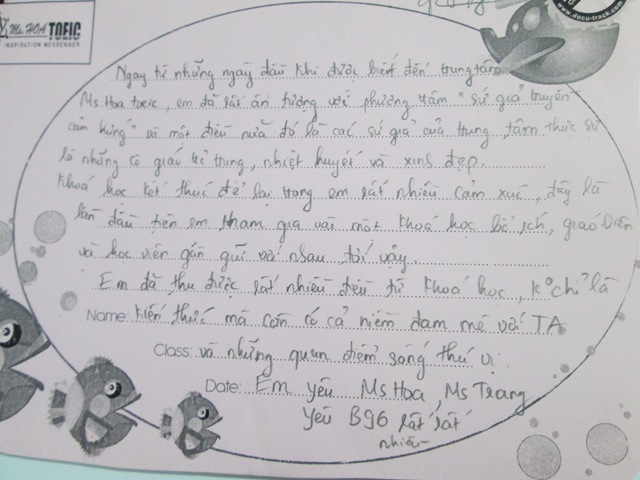 Ms. HOA TOEIC
INSPIRATION MESSENGER
www.docu-track.com
Ngay từ những ngày đầu khi được biết đến trung tâm
Ms.Hoa toeic, em đã rất ấn tượng với phương trâm "sứ giả truyền
cảm hứng" và một điều nữa đó là các sứ giả của trung tâm thực sự
là những cô giáo trẻ trung, nhiệt huyết và xinh đẹp.
Khoá học kết thúc để lại trong em rất nhiều cảm xúc, đây là
lần đầu tiên em tham gia vào một khoá học bổ ích, giáo viên
và học viên gần gũi với nhau tới vậy.
Em đã thu được rất nhiều điều từ khoá học, ko chỉ là
Name: kiến thức mà còn có cả niềm đam mê với TA
Class: và những quan điểm sống thú vị.
Date: Em yêu Ms Hoa, Ms Trang
Yêu B96 rất rất
nhiều